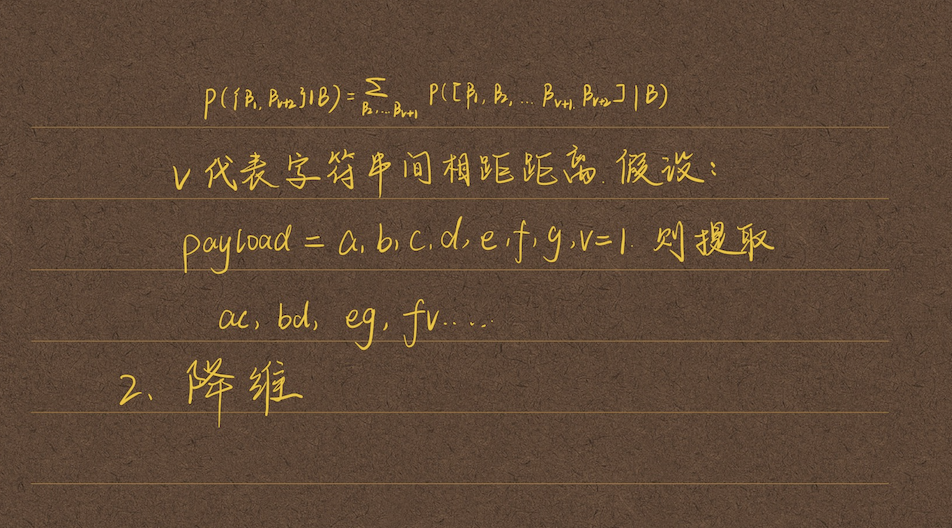 P({β₁, βᵥ₊₂}|B) = ∑_{β₂,...βᵥ₊₁} P([β₁, β₂, ... βᵥ₊₁, βᵥ₊₂] | B)
v 代表字符串间相距距离. 假设:
payload = a, b, c, d, e, f, g, v=1. 则提取
ac, bd, eg, fv.....
2、降维